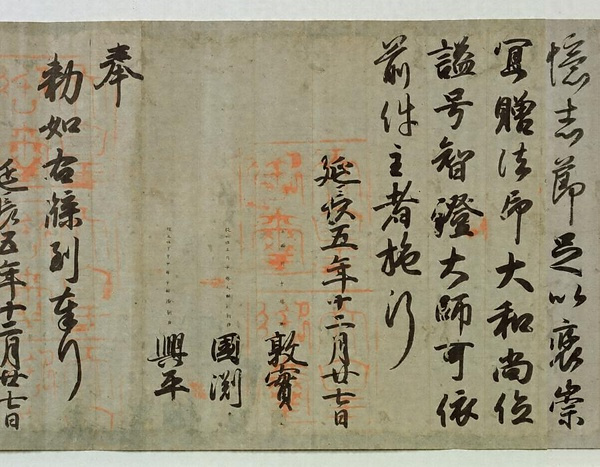 憶志節足以褒崇
冝贈法印大和尚位
謚号智證大師可依
前件主者施行
延長五年十二月廿七日
敦實
國渕
興平
奉
勅如右牒到奉行
延長五年十二月廿七日